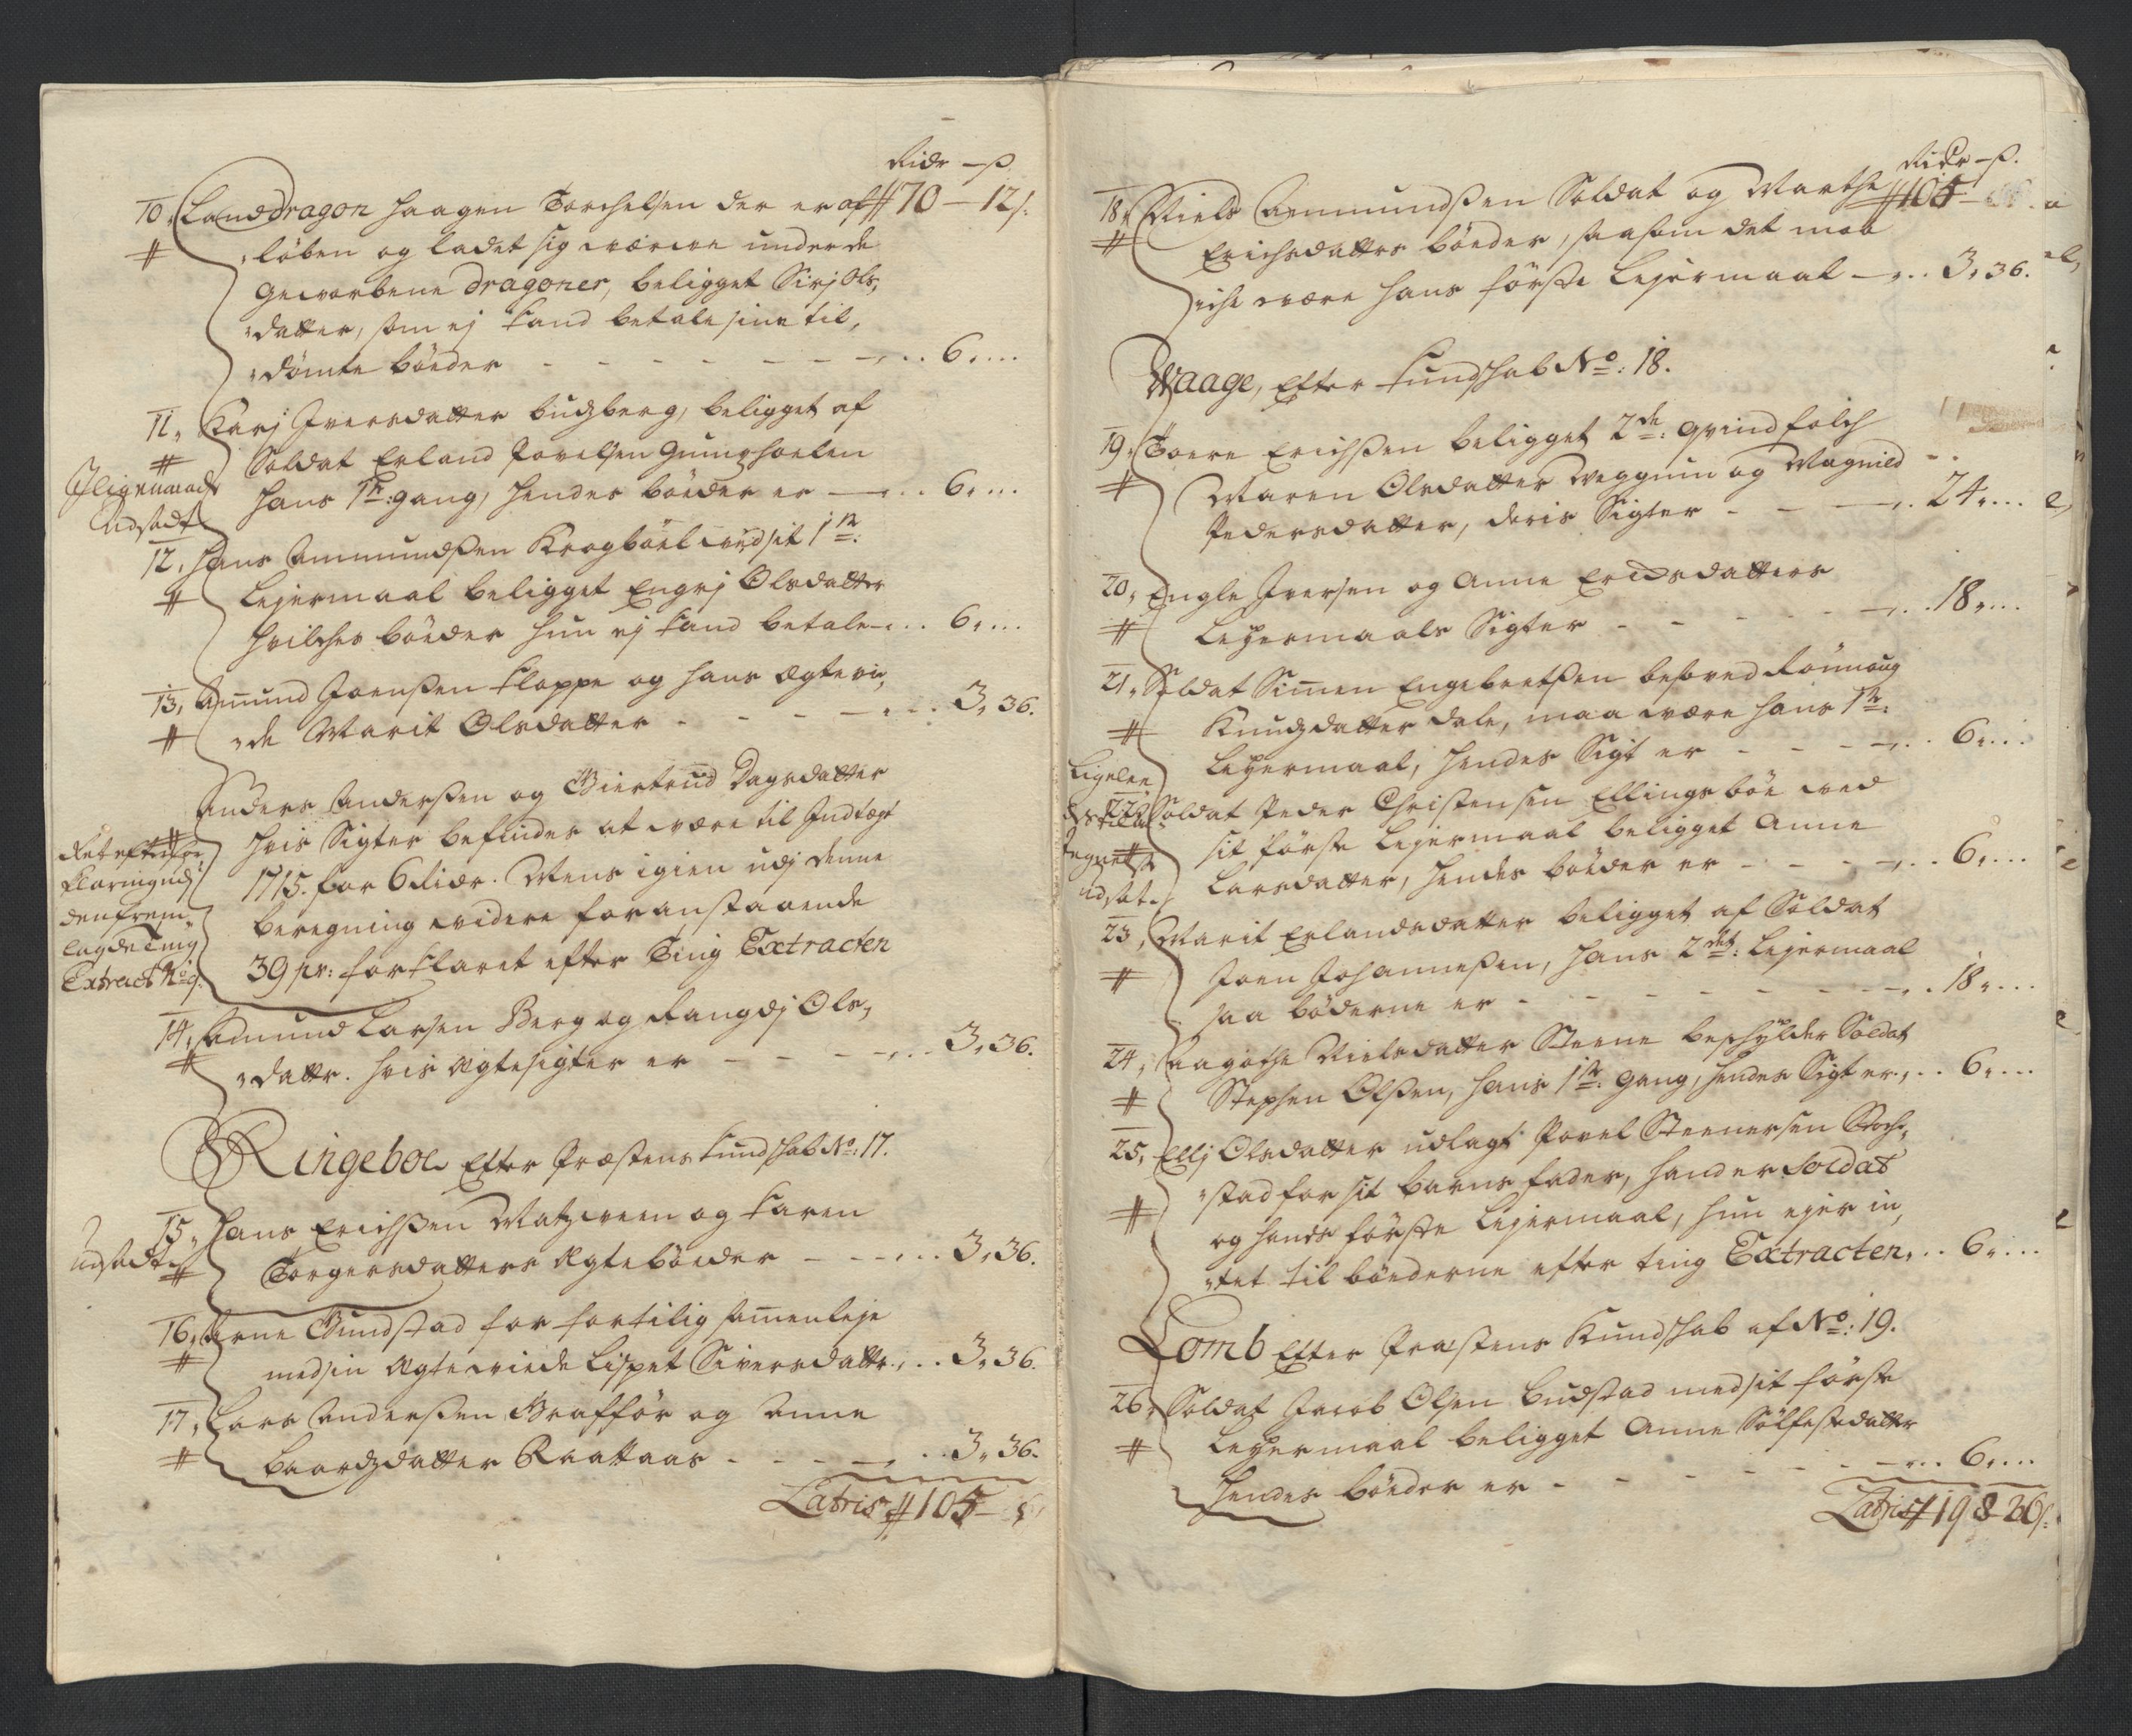 Ridr – ß
10, Landdragon Haagen Torchelsen der er af # 70 – 12 ß:
# løben og ladet sig wærwe under de
Gewarbene Dragoner, beligget Sirj Ols,
datter, som ej kand betale sine til,
dømte bøeder - - - - 6....
11, Karj Iversdatter Budzberg, beligget af
# Soldat Erland Povelsen
hans 1te: gang, hendes bøeder er - 6....
Udsadt
12, Hans Ammundßen Kragbøel wed sit 1te:
# Lejermaal beligget Engrj Olsdatter
hvilches bøeder hun ej kand betale - 6....
13, Amund Joenßen Kloppe og hans Ægte vi,
# de Marit Olsdatter - - - 3, 36.
Anders Anderßen og Giertrud Dagsdatter
# hvis Sigter befindes at wære til Indtægt
1715. for 6 Ridr. Mens igien udj denne
beregning widere foranstaaende
39 pr: forklaret efter Ting Extracten
Ret efter for
klaring udj
den frem,
lagde Ting
Extract No 9.
14, Amund Larsen Berg og Rangdj Ols,
# dattr. hvis Ægtesigter er - - - 3, 36.
Ringeboe Efter Præstens Kundskab No: 17.
15, Hans Erichßen Matzween og Karen
Udsadt # Torgersdatters Ægtebøeder - - - 3, 36.
16, Arne Gundstad for fortilig samenleje
# med sin Ægte wiede Lispet Siversdattr. - 3, 36.
17, Lars Anderßen Graffør og Anne
# Baardzdatter Raattaas - - - 3, 36.
Latris # 105 –
Ridr – ß.
18, Niels Ammundßen Soldat og Marthe # 105 –
# Erichsdatters bøeder, saasom det maa
iche wære hans første Lejermaal - 3, 36.
Waage, Efter Kundskab No: 18.
19, Toere Erichßen beligget 2de: qvindfolch
# Maren Olsdatter Weggum og Magnild
Pedersdatter, deris Sigter - - - 24....
20, Engle Iversen og Anne Erichsdatters
# Leyermaals Sigter - - - 18....
21, Soldat Simen Engebretßen besoved Rønnoug
# Knudzdatter Dale, maa wære hans 1te:
Leyermaal, hendes Sigt er - - - 6....
22, Soldat Peder Christensen Ellingsbøe wed
# sit første Lejermaal beligget Anne
Larsdatter, hendes bøeder er - - - 6....
Udsat.
23, Marit Erlandsdatter beligget af Soldat
# Joen Johannesßen, hans 2det: Lejermaal
saa bøderne er - - - - 18....
24, Aagothe Nielsdatter Steene beschylder Soldat
# Stephen Olßen, hans 1ste: gang, hendes Sigt er, 6....
25, Ellj Olsdatter udlagt Povel Steenersen Stoch,
# stad for sit barns fader, hand er Soldat
og hands første Lejermaal, hun ejer in,
tet til bøederne efter ting Extracten, 6....
Lomb Efter Præstens Kundskab af No: 19.
26, Soldat Jacob Olsen Budstad med sit første
# Leyermaal beligget Anne Sølfestdatter
hendes bøeder er - - - - 6....
Latris # 198 – 26 ß: